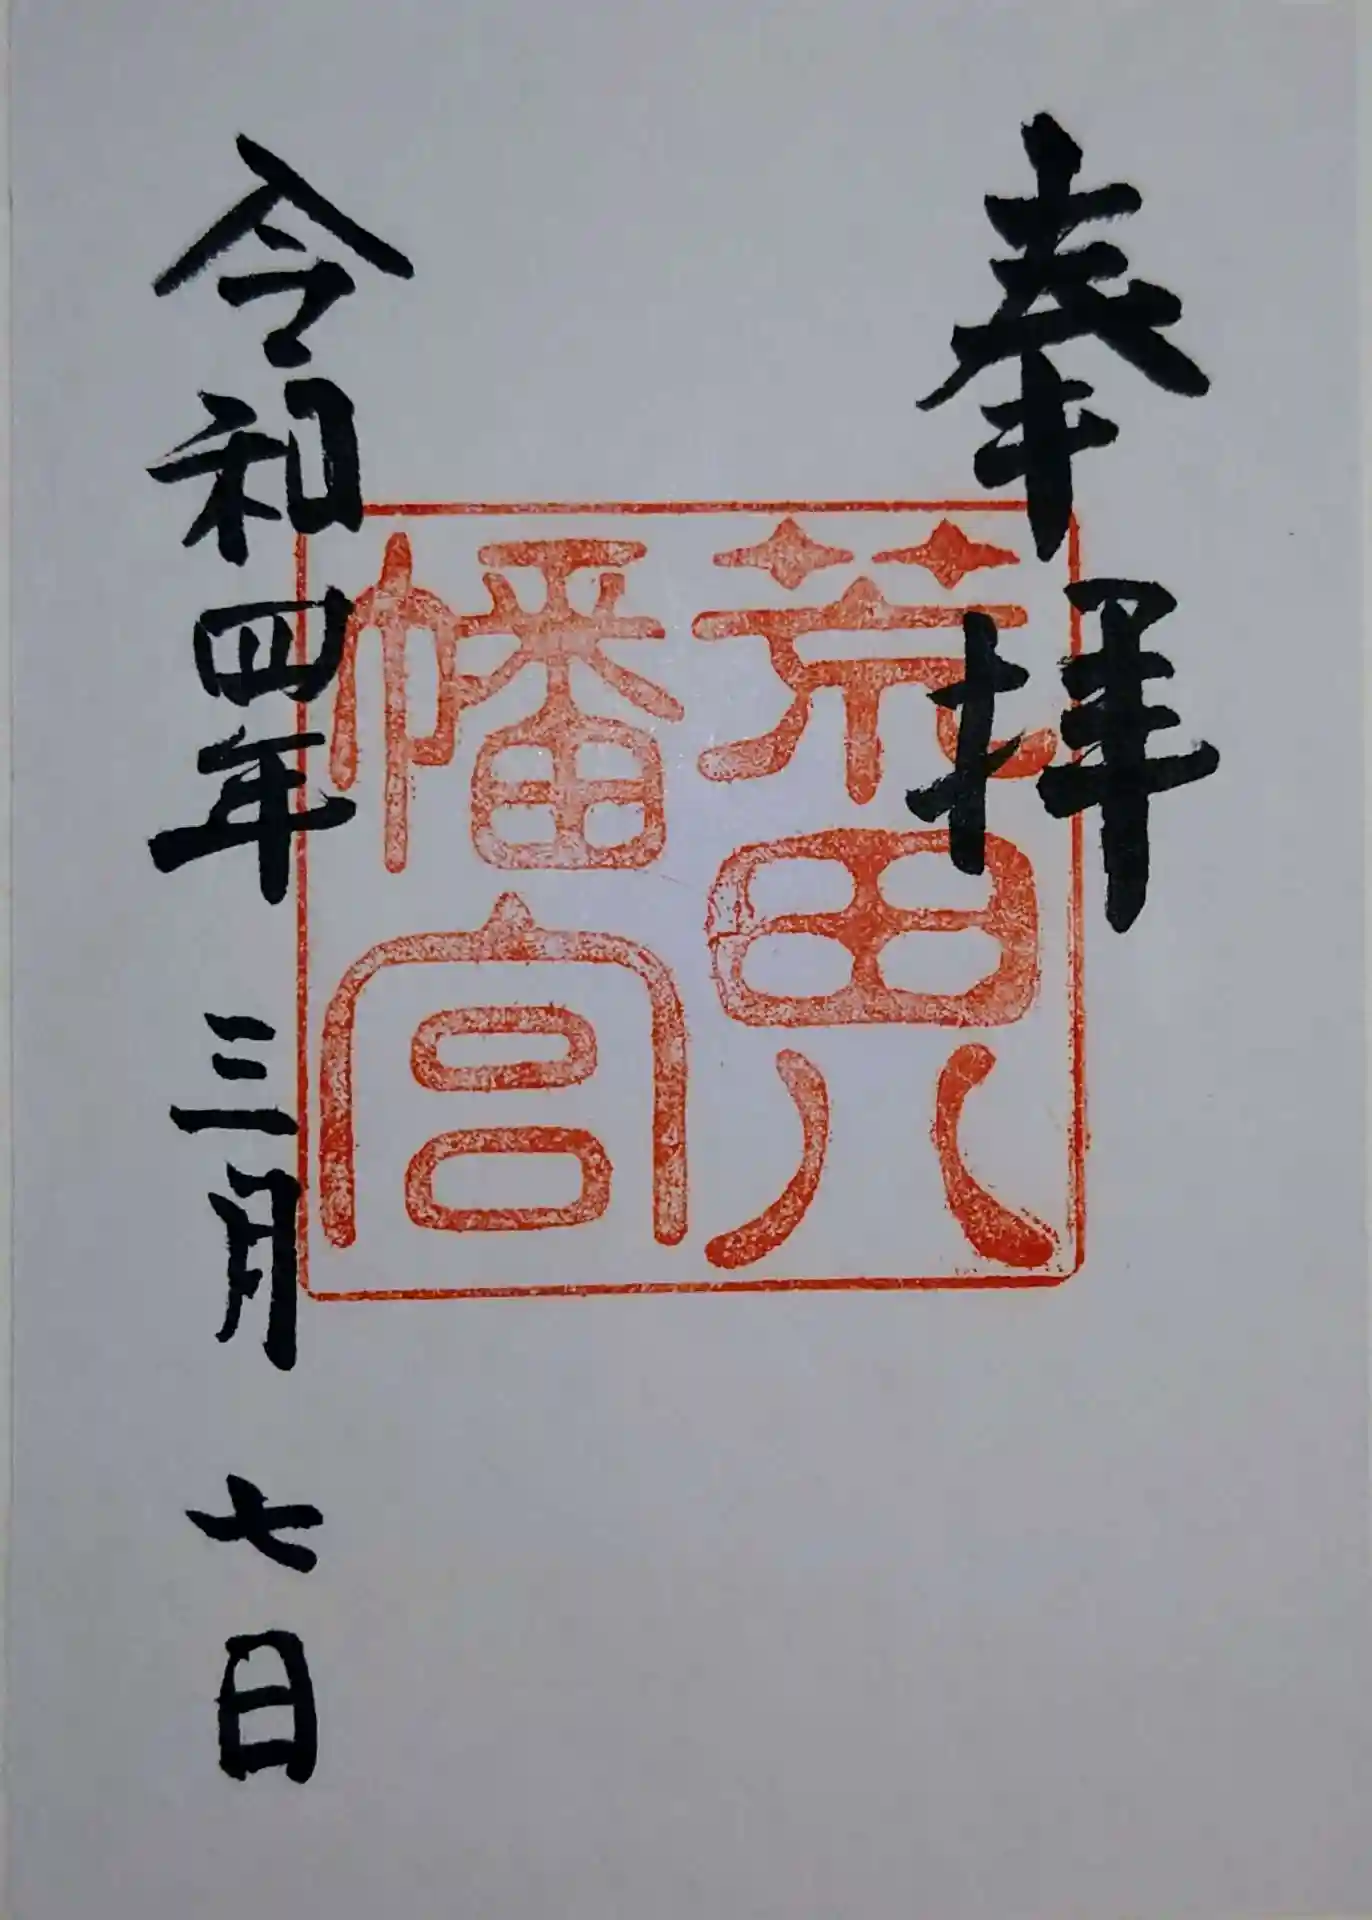 奉拝
荒田八
幡宮
令和四年三月七日